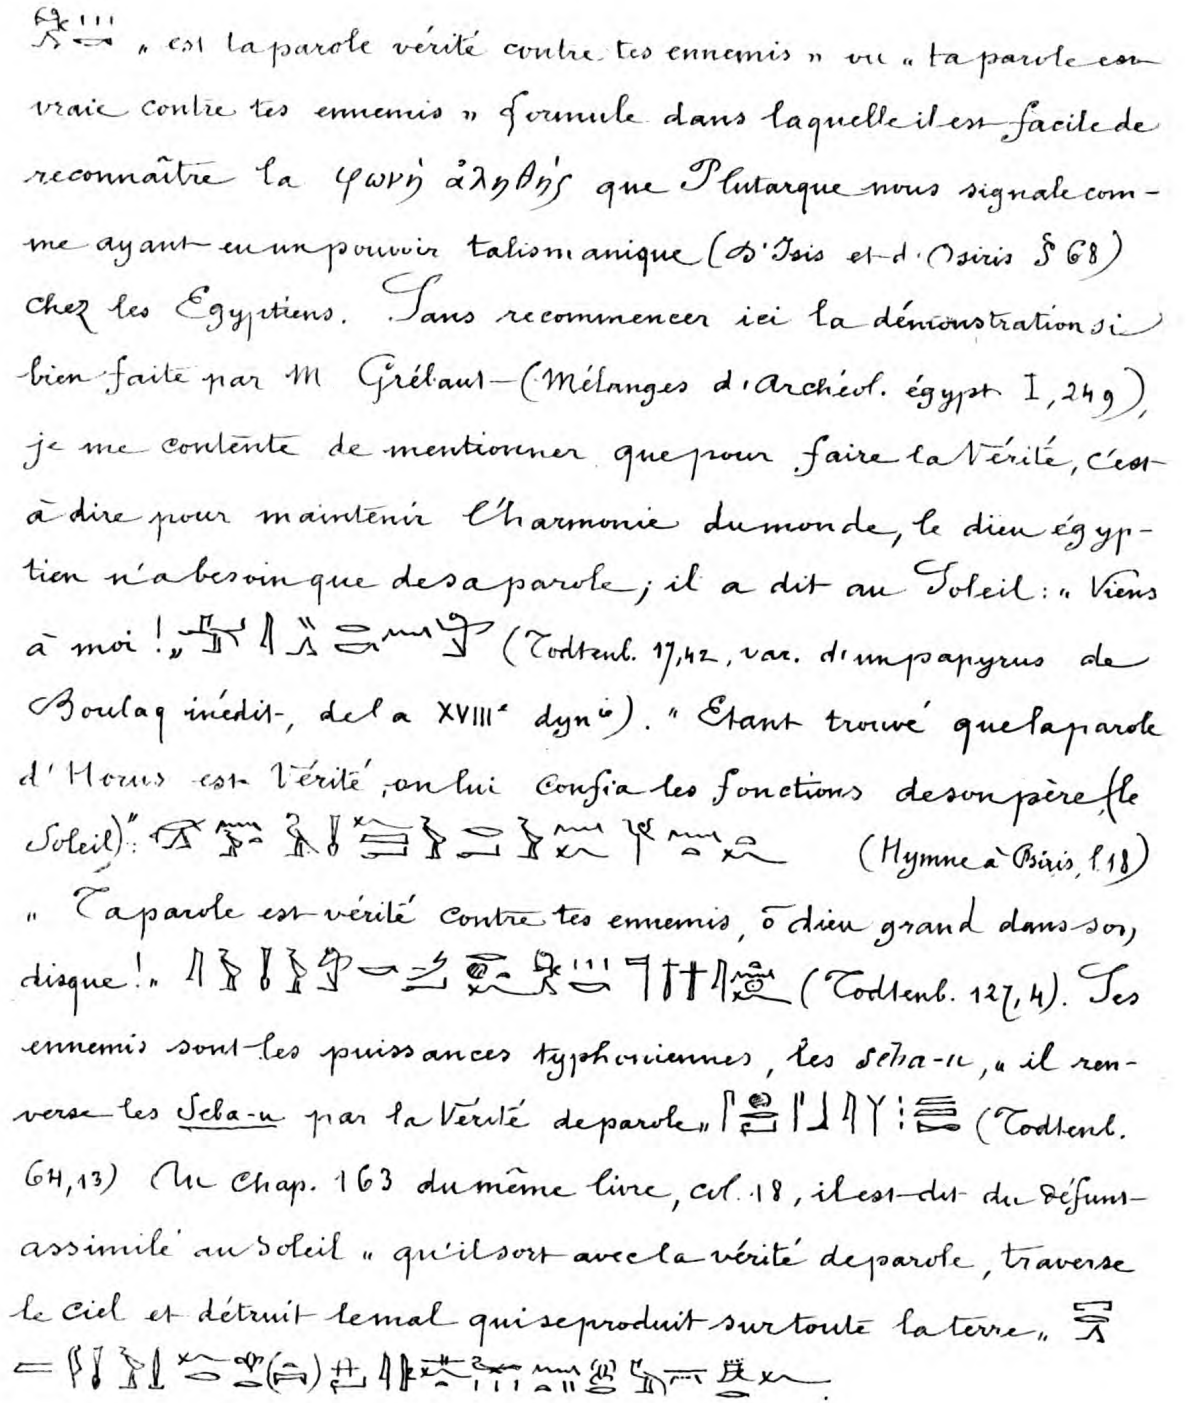 « est ta parole vérité contre tes ennemis » ou « ta parole est
vraie contre tes ennemis » formule dans laquelle il est facile de
reconnaître la φωνή ἀληθής que Plutarque nous signale com-
me ayant eu un pouvoir talismanique (D'Isis et d'Osiris § 68)
chez les Egyptiens. Sans recommencer ici la démonstration si
bien faite par M Grébaut (Mélanges d'Archéol. égypt. I, 249),
je me contente de mentionner que pour faire la Vérité, c'est
à dire pour maintenir l'harmonie du monde, le dieu égyp-
tien n'a besoin que de sa parole ; il a dit au Soleil : « Viens
à moi ! » (Todtenb. 17,42, var. d'un papyrus de
Boulaq inédit, de la XVIIIe dynie). « Etant trouvé que la parole
d'Horus est Vérité, on lui confia les fonctions de son père (le
Soleil) » : (Hymne à Osiris, l. 18)
« Ta parole est vérité contre tes ennemis, ô dieu grand dans son
disque ! » (Todtenb. 127,4). Ses
ennemis sont les puissances typhoniennes, les Seba-u, « il ren-
verse les Seba-u par la Vérité de parole » (Todtenb.
64,13) Au Chap. 163 du même livre, col. 18, il est dit du défunt
assimilé au Soleil « qu'il sort avec la vérité de parole, traverse
le ciel et détruit le mal qui se produit sur toute la terre »